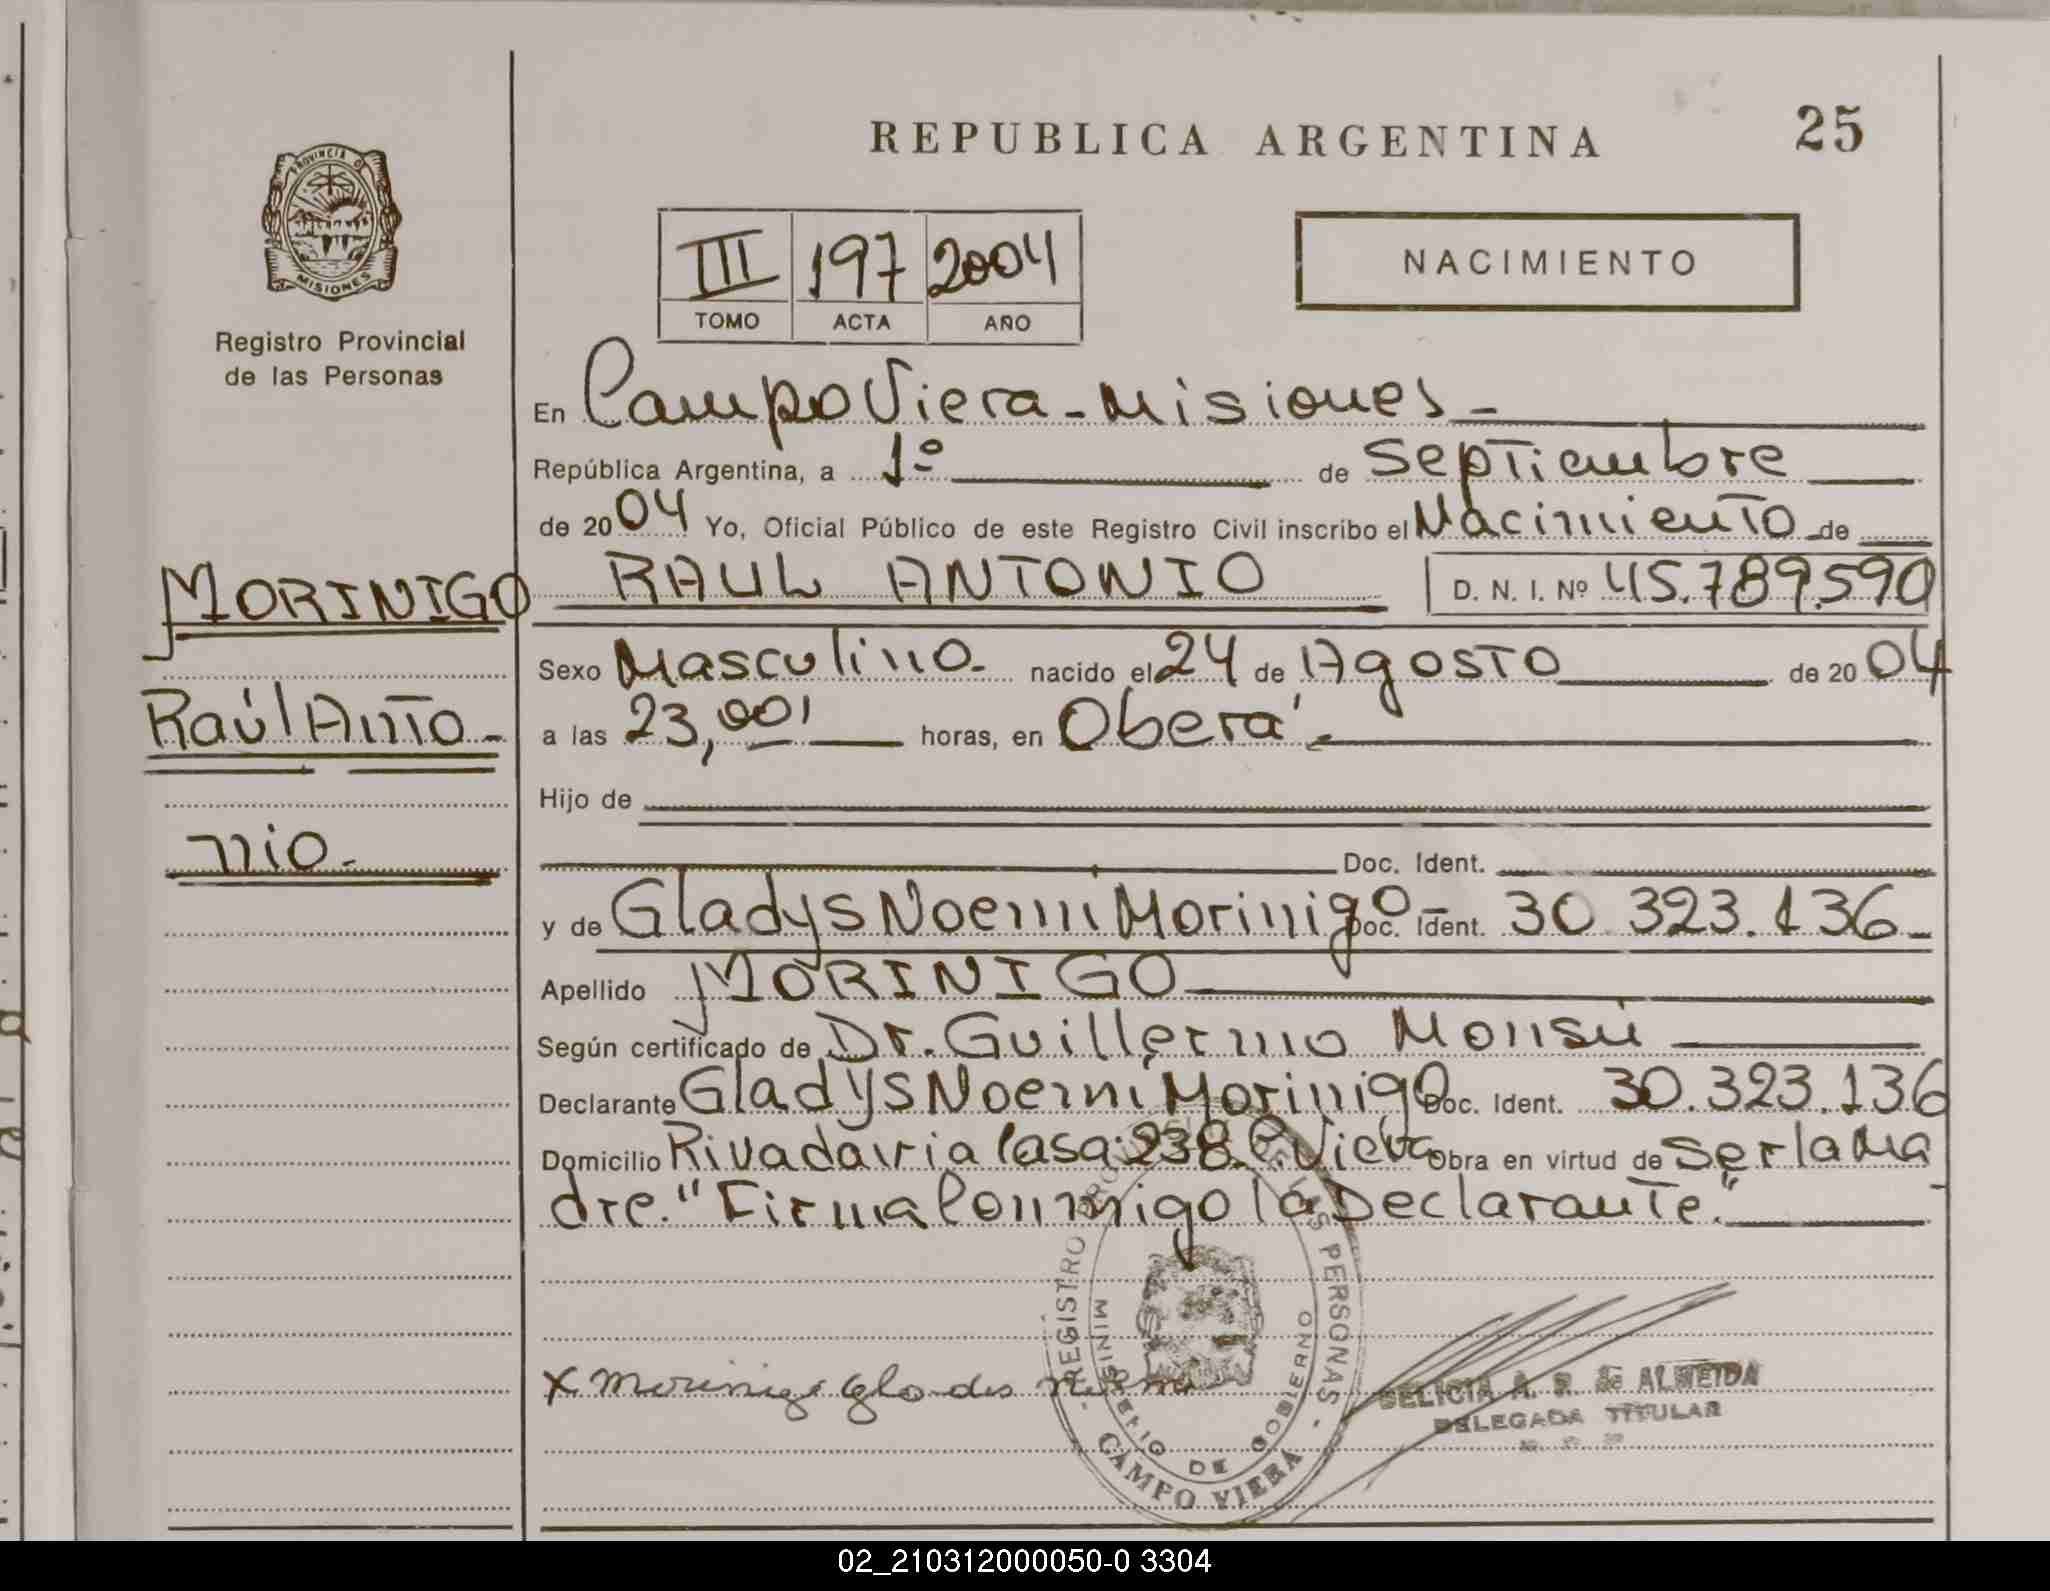 REPUBLICA ARGENTINA
25
PROVINCIA DE
MISIONES
Registro Provincial
de las Personas
III 197 2004
TOMO ACTA AÑO
NACIMIENTO
En Campo Viera - Misiones -
República Argentina, a 1º de Septiembre
de 2004 Yo, Oficial Público de este Registro Civil inscribo el Nacimiento de
MORINIGO
RAUL ANTONIO D. N. I. Nº 45.789.590
Sexo Masculino - nacido el 24 de Agosto de 2004
Raúl Anto-
nio.-
a las 23,00' horas, en Oberá.-
Hijo de
Doc. Ident.
y de Gladys Noemi Morinigo - Doc. Ident. 30.323.136 -
Apellido MORINIGO
Según certificado de Dr. Guillermo Monsu
Declarante Gladys Noemi Morinigo Doc. Ident. 30.323.136
Domicilio Rivadavia Casa: 238. C. Viera Obra en virtud de ser la Ma-
dre. "Firma Conmigo la Declarante."
x morinigo glades
REGISTRO PROVINCIAL DE LAS PERSONAS
MINISTERIO DE GOBIERNO
CAMPO VIERA
DELICIA A. R. de ALMEIDA
DELEGADA TITULAR
02_210312000050-0 3304